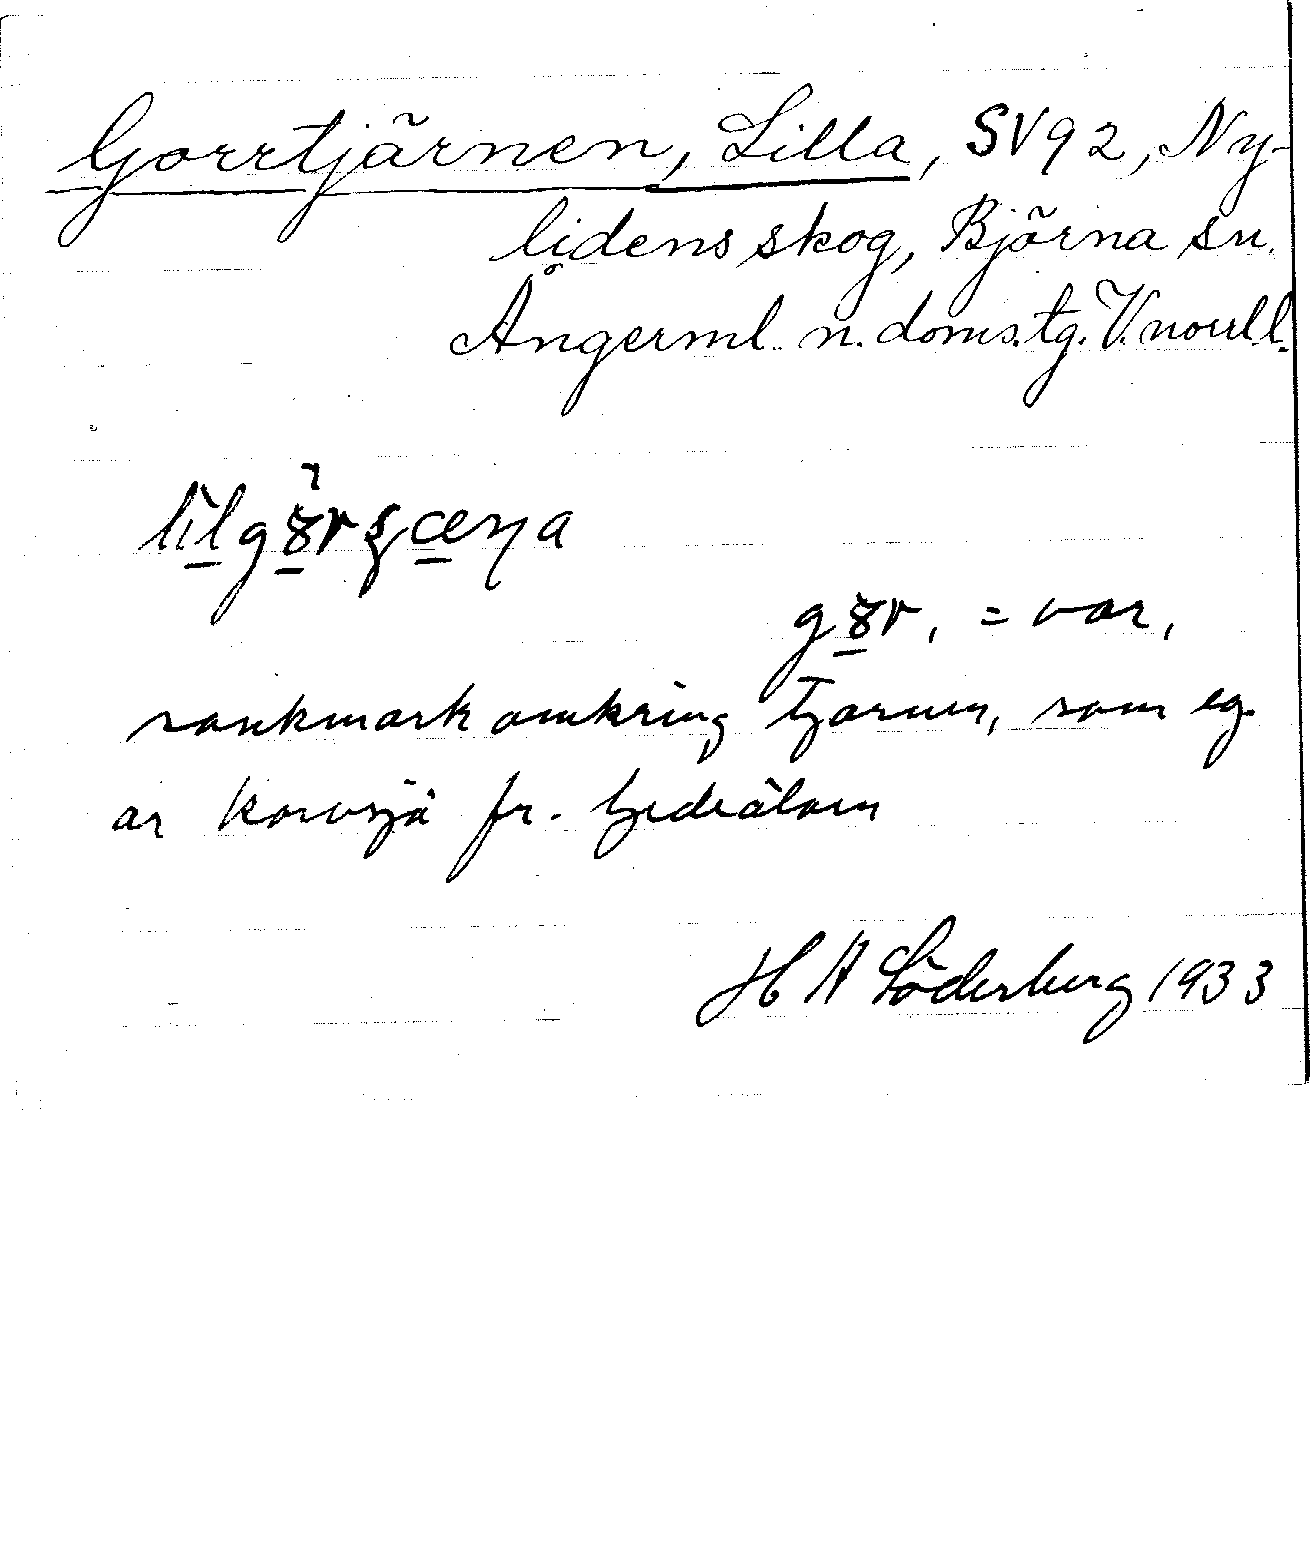 Gorrtjärnen, Lilla, SV92, Ny-
lidens skog, Björna sn.
Ångerml. n. doms. tg. V.norrl l.
gȣr, = var,
sankmark omkring tjärnen, som eg.
är korvsjö fr. Gideälven
H A Söderberg 1933